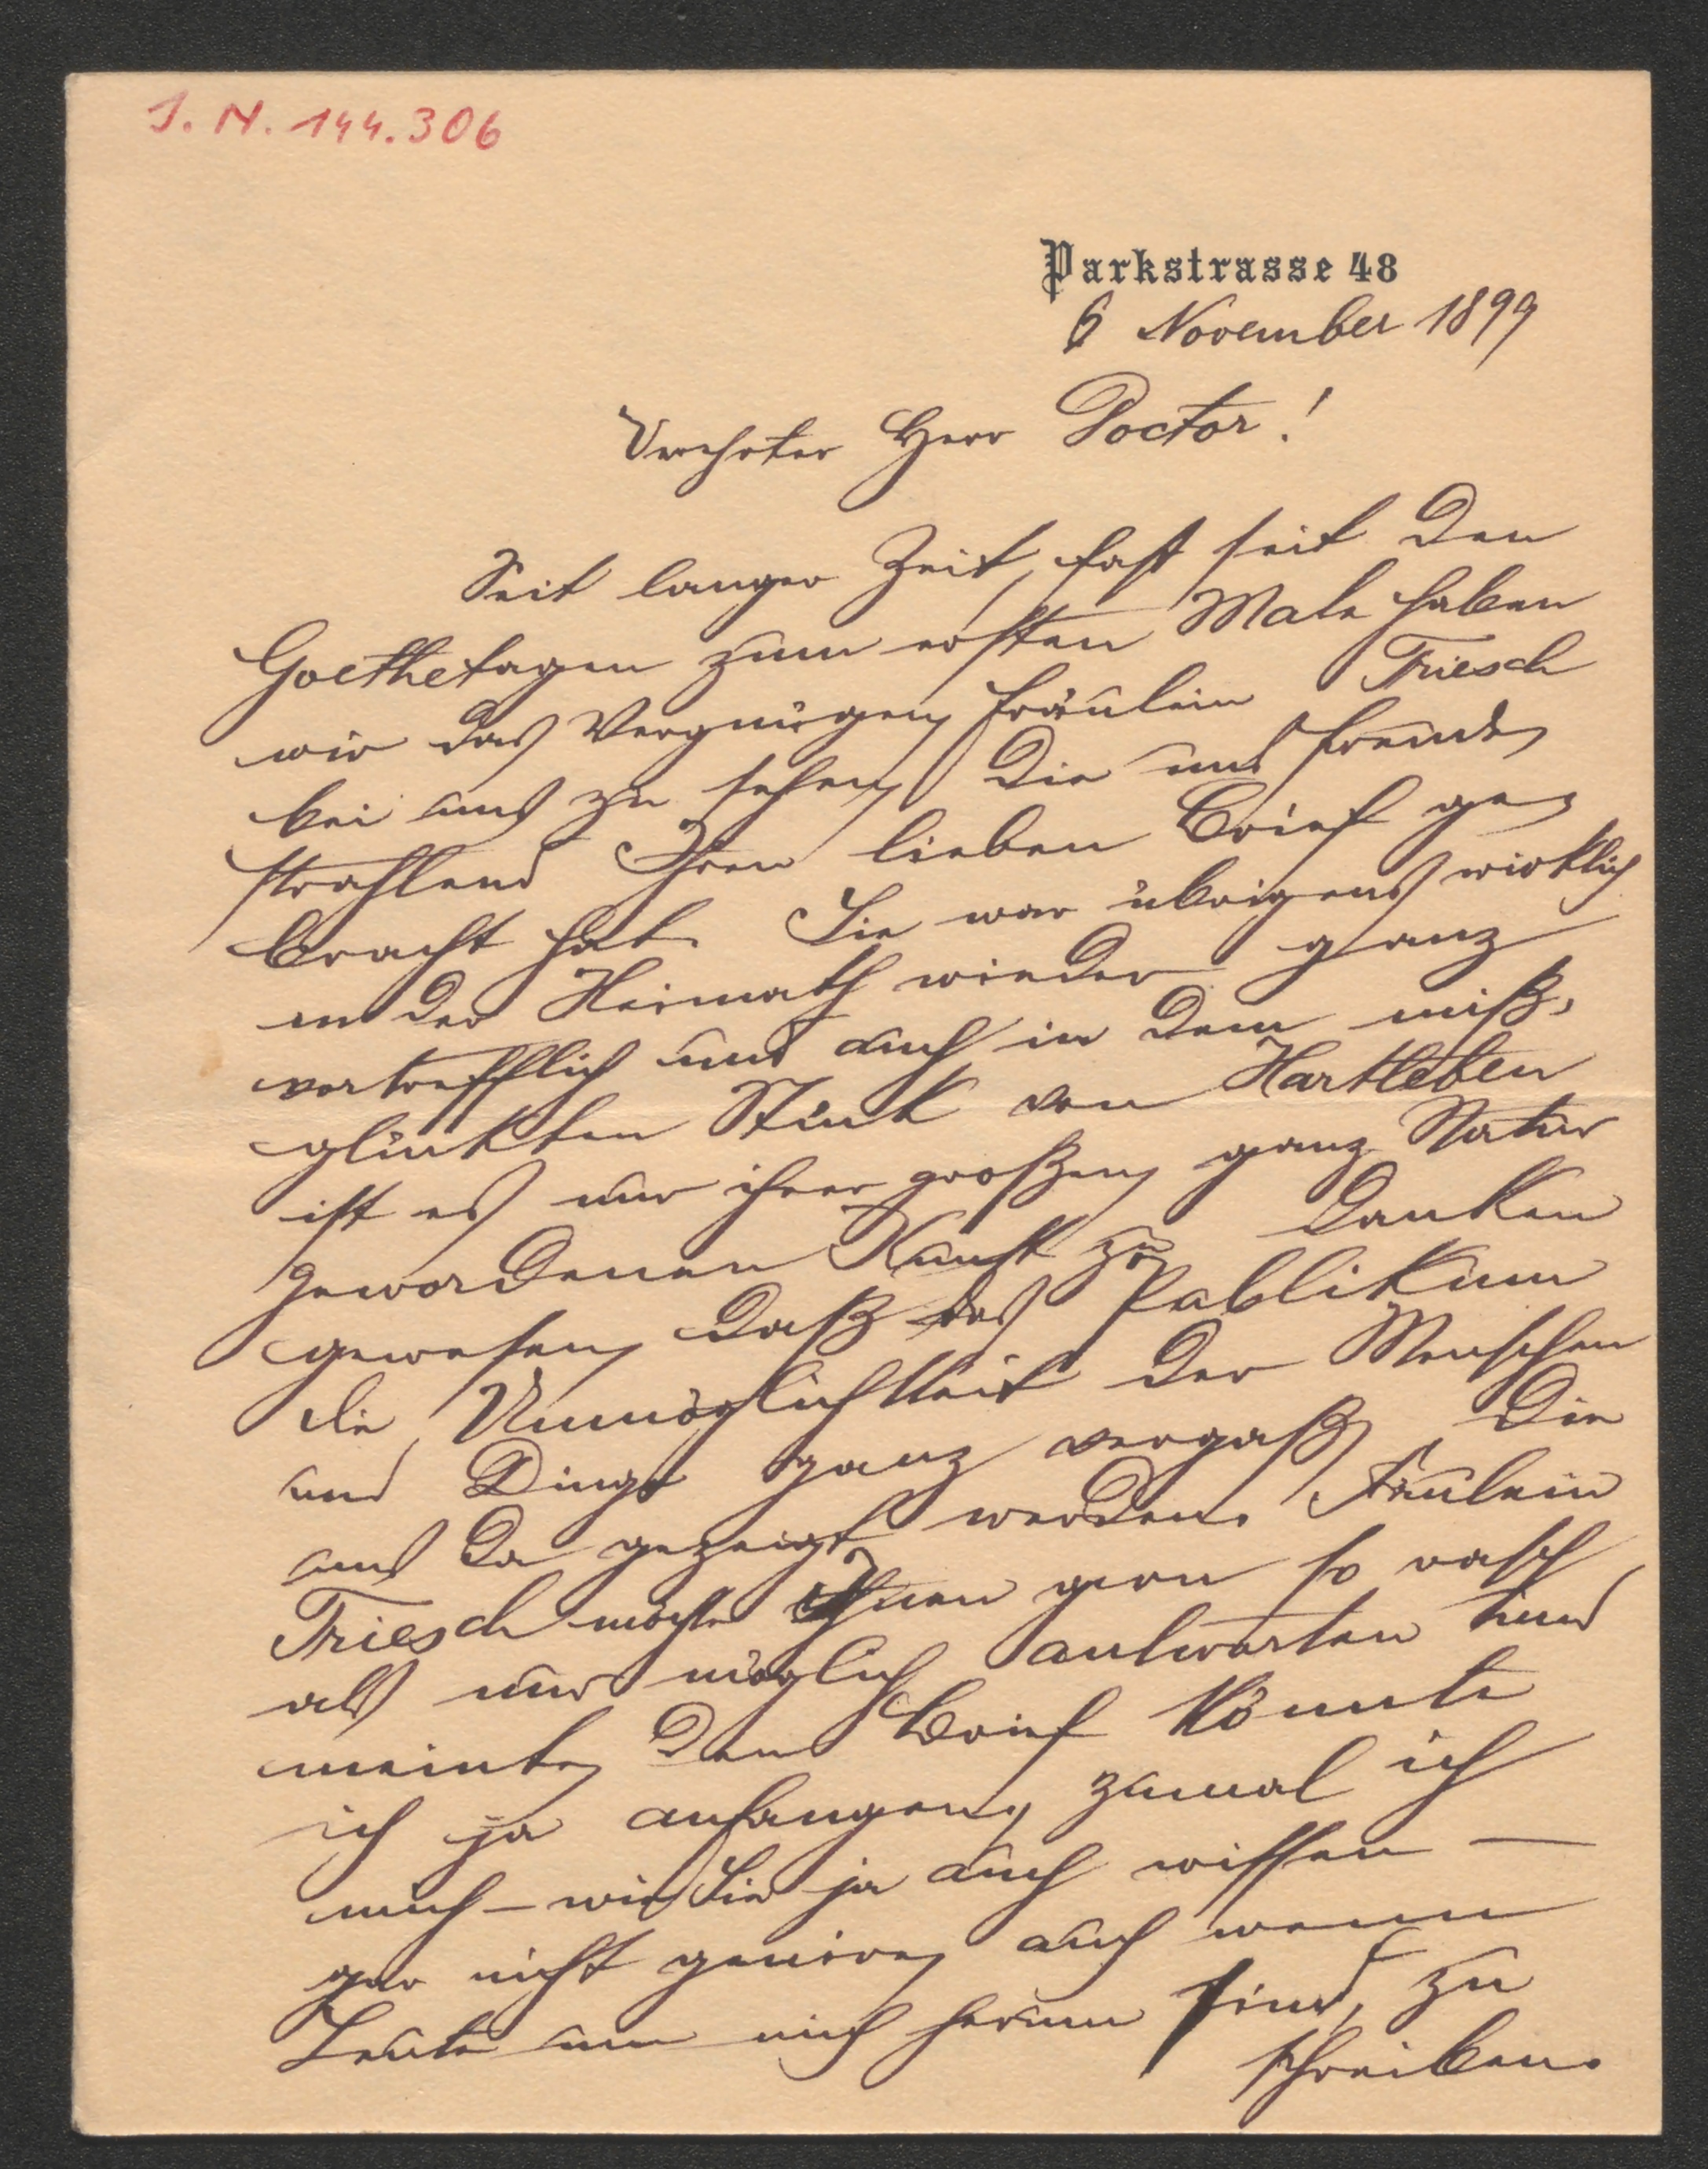 J. N. 144.306
Parkstrasse 48
6 November 1899
Verehrter Herr Doctor!
Seit langer Zeit, fast seit den
Goethetagen zum ersten Male haben
wir das Vergnügen Fräulein Triesch
bei uns zu sehen, die uns freude
strahlend Ihren lieben Brief ge
bracht hat. Sie war übrigens wirklich
in der Heimath wieder ganz
vortrefflich und auch in dem miß-
glückten Stück von Hartleben
ist es nur ihrer großen, ganz Natur
gewordenen Kunst zu danken
gewesen, daß das Publikum
die Unmöglichkeit der Menschen
und Dinge ganz vergaß, die
uns da gezeigt werden. Fräulein
Triesch möchte Ihnen gern so rasch
als nur möglich antworten und
meinte, den Brief könnte
ich ja anfangen, zumal ich
mich – wie Sie ja auch wissen –
gar nicht genire, auch wenn
Leute um mich herum sind, zu
schreiben.